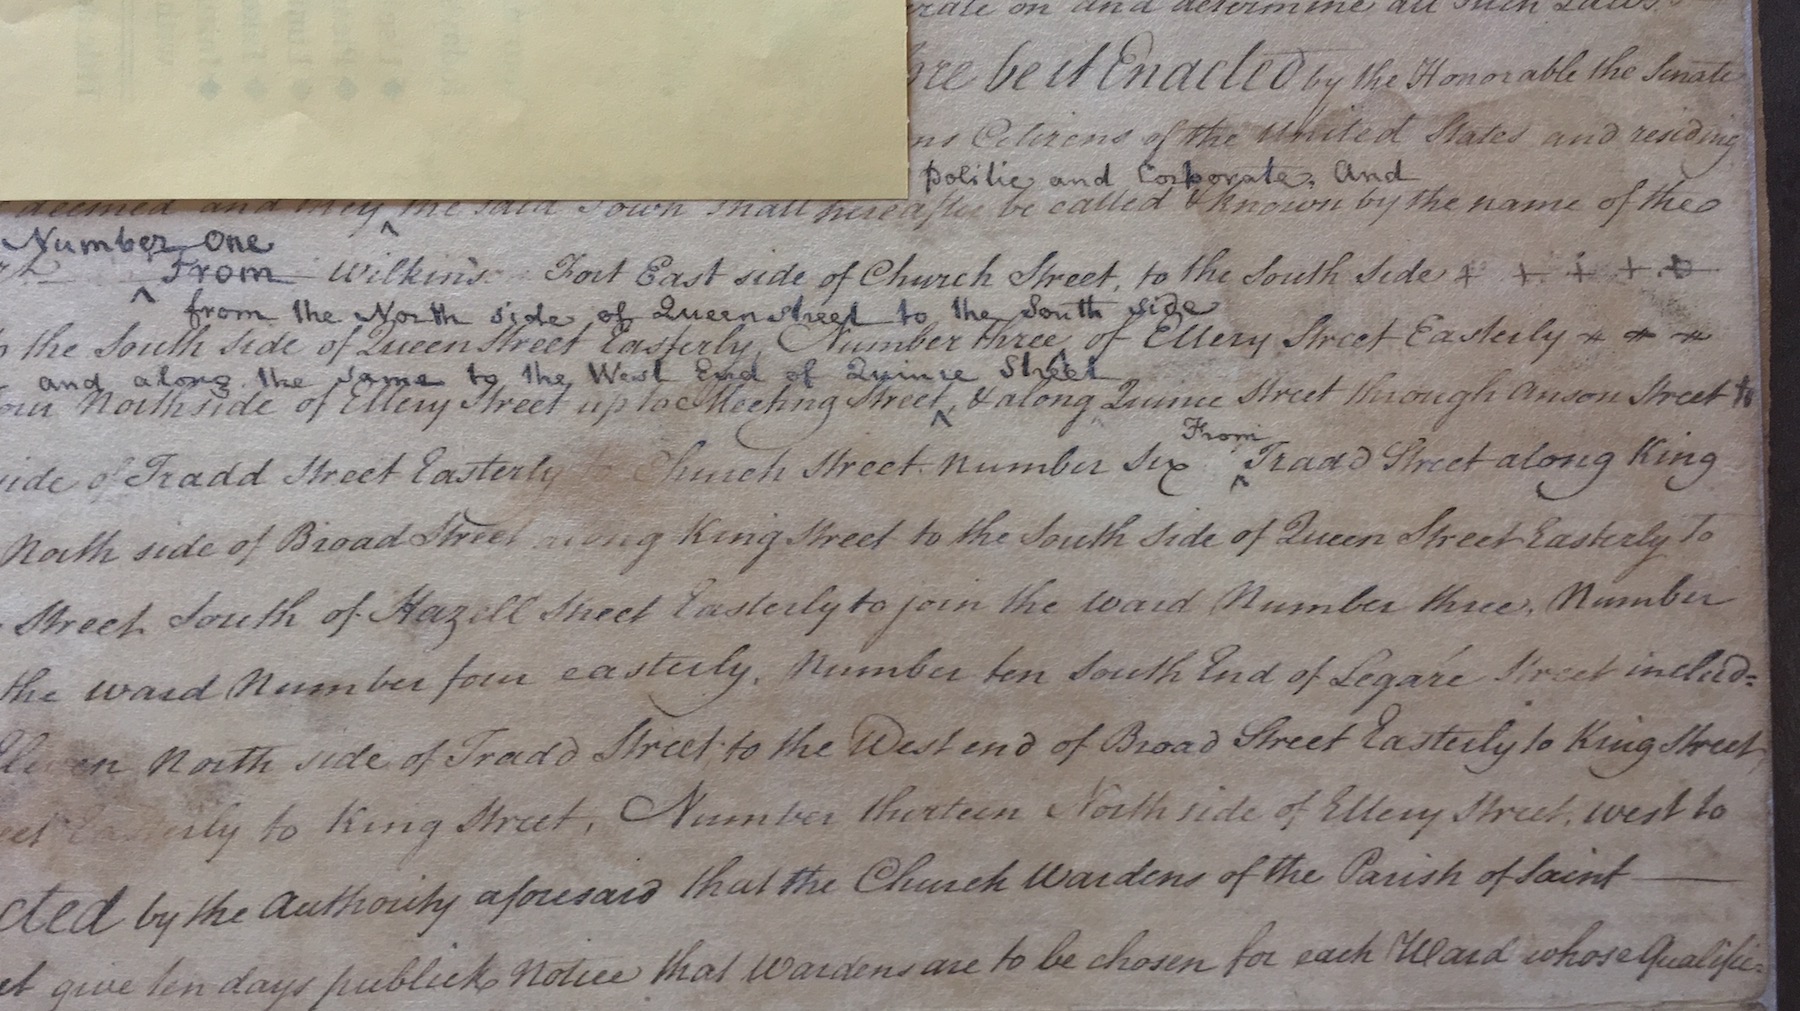 on and determine all such Laws
be it Enacted by the Honorable the Senate
Citizens of the United States and residing
politic and Corporate, And
deemed and they the said Town shall hereafter be called & known by the name of the
Number One
From Wilkins Fort East side of Church Street, to the South side
from the North side of Queen street to the South side
the South side of Queen Street Easterly, Number three, of Ellery Street Easterly
and along the same to the West End of Quince Street
North side of Ellery Street up to Meeting Street, & along Quince Street through Anson Street to
From
side of Tradd Street Easterly Church Street Number Six Tradd Street along King
North side of Broad Street along King Street to the South side of Queen Street Easterly to
Street South of Hazell Street Easterly to join the ward Number three, Number
the ward Number four easterly, Number ten South End of Legaré Street includ=
Eleven North side of Tradd Street to the West end of Broad Street Easterly to King Street,
Easterly to King Street, Number thirteen North side of Ellery Street, west to
cted by the Authority aforesaid that the Church Wardens of the Parish of Saint
give ten days publick Notice that Wardens are to be chosen for each Ward whose Qualifi=